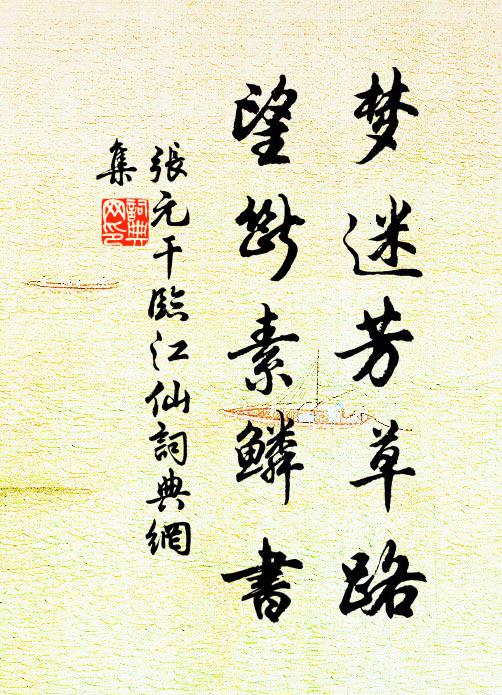 梦迷芳草路
望断素鳞書
張元干臨江仙詞典網
集
詞典
网印